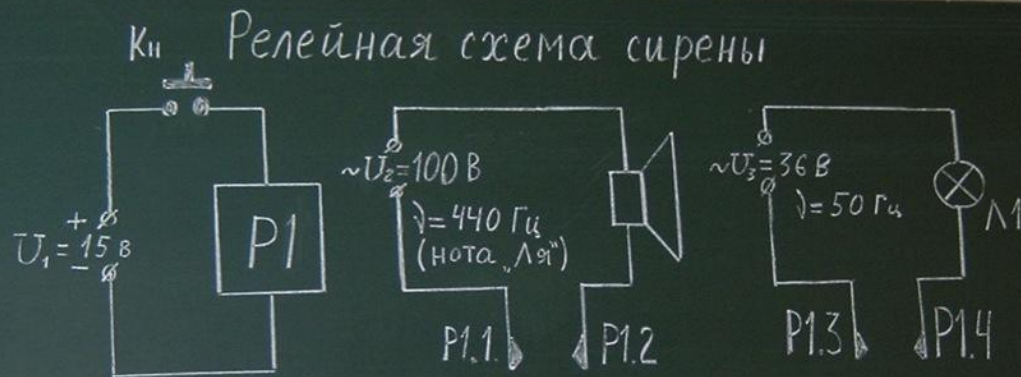 Кн Релейная схема сирены
+
U₁=15 в
−
Р1
~U₂=100 В
ν=440 Гц
(нота „Ля")
Р1.1.
Р1.2
~U₃=36 В
ν=50 Гц
Л1
Р1.3
Р1.4